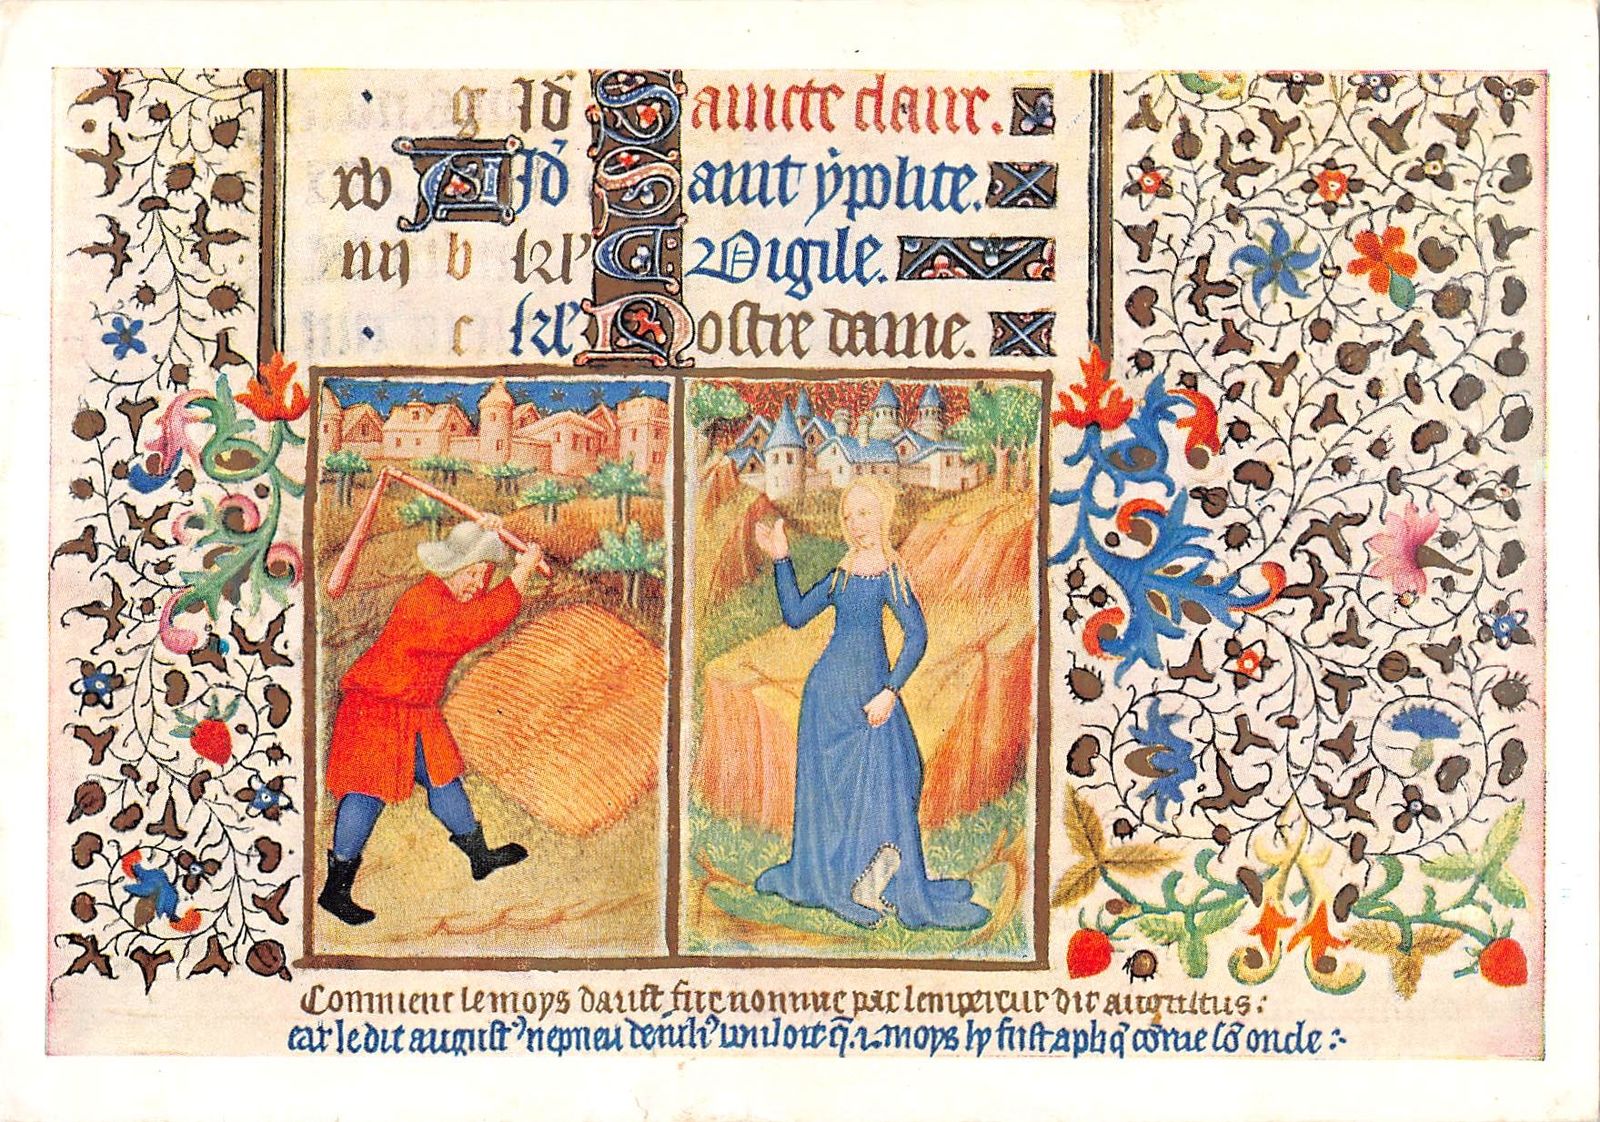 g Id Saincte claire.
xv A Id Saint ypolite.
iiij b kl' Vigile.
c kl' Nostre dame.
Comment le moys daust fut nomme par lempereur dit augustus :
car le dit august' nepueu de iuli' vouloit q̃ .i. moys ly fust apliq̃ cõme sõ oncle :